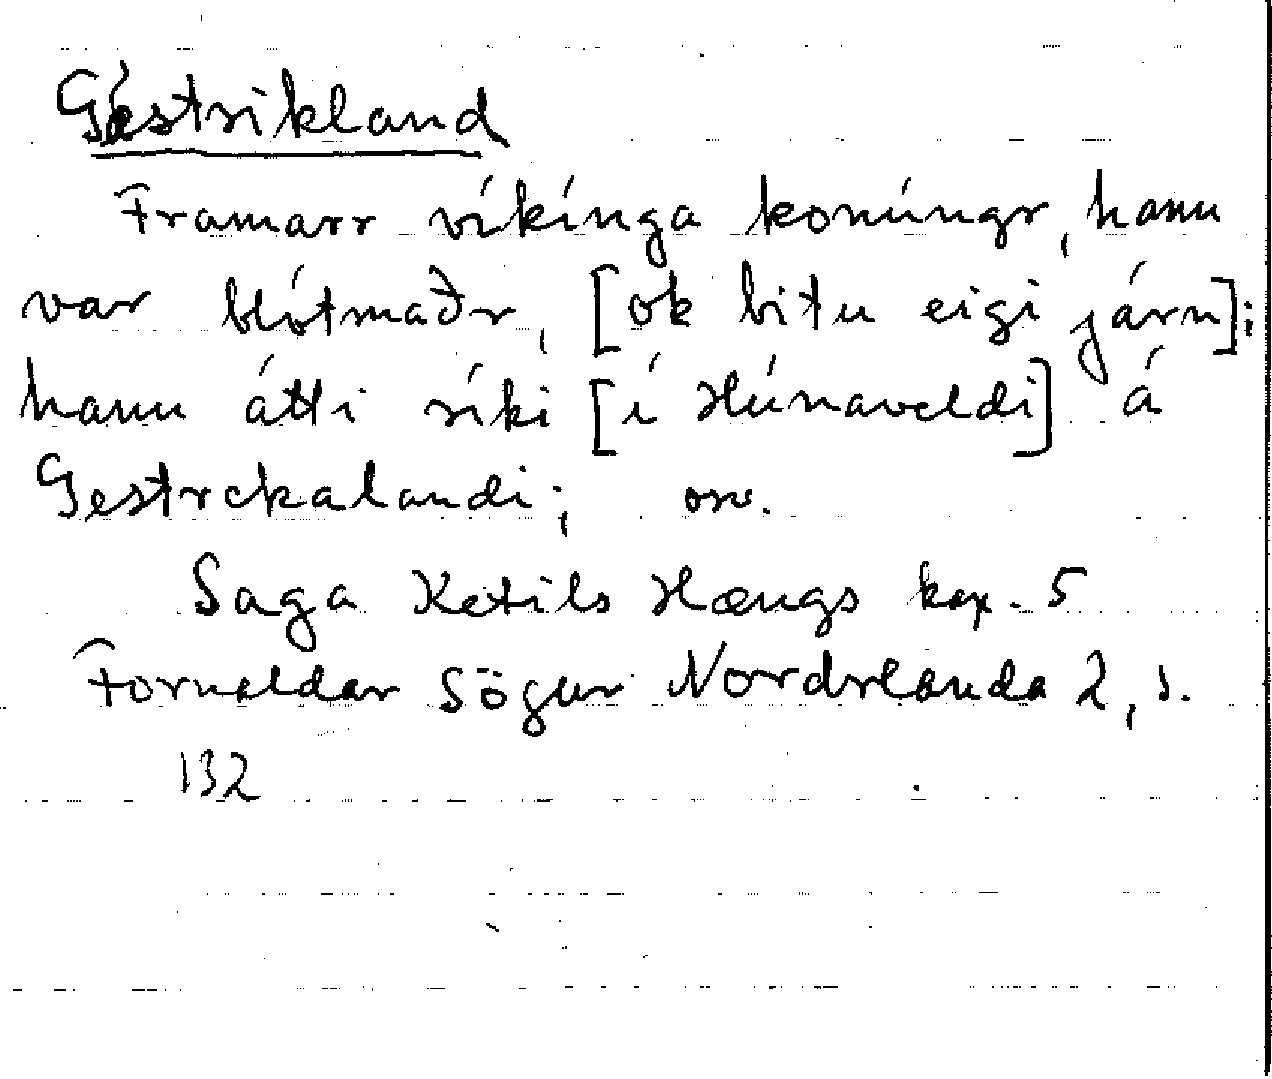 Gästrikland
Framarr víkínga konúngr, hann
var blótmaðr, [ok bitu eigi járn];
hann átti ríki [í Húnaveldi] á
Gestrekalandi; osv.
Saga Ketils Hængs kap. 5
Fornaldar Sögur Nordrlanda 2, s.
132